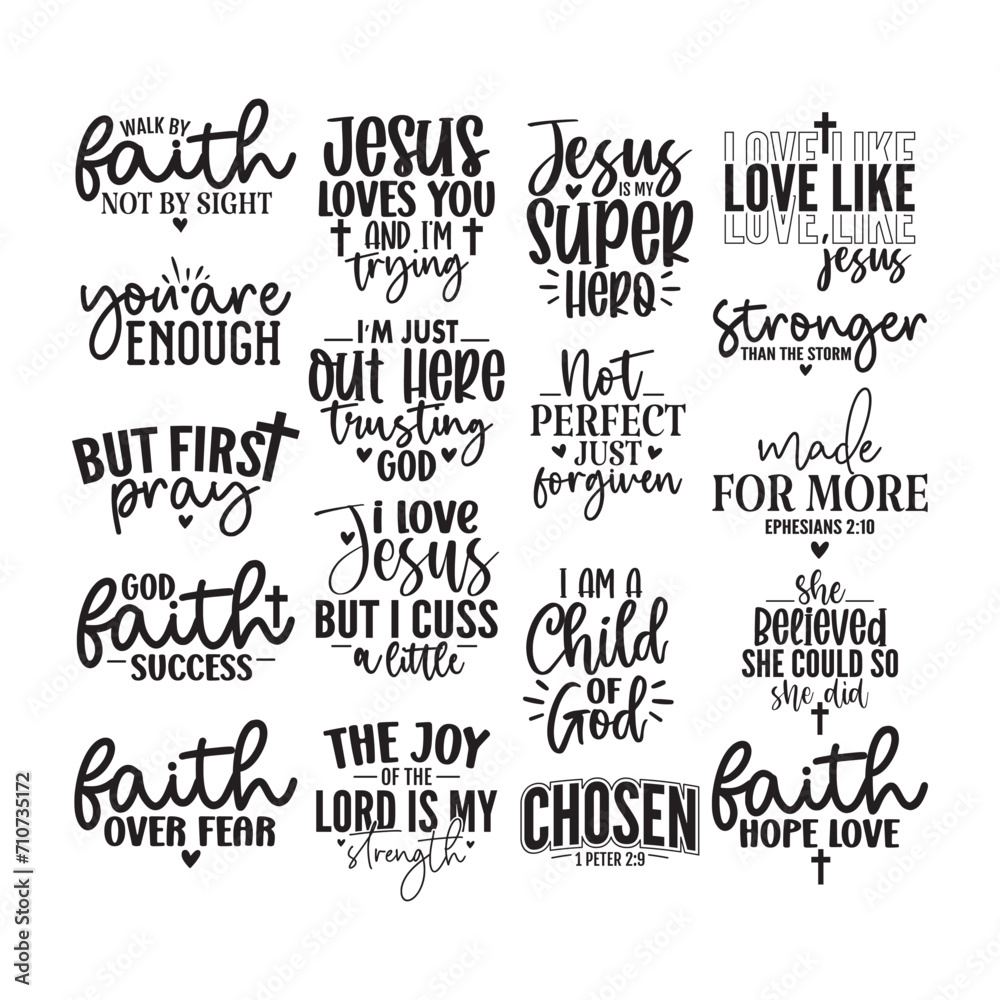 WALK BY
faith
NOT BY SIGHT
you are
ENOUGH
BUT FIRST
pray
GOD
faith
SUCCESS
faith
OVER FEAR
JESUS
LOVES YOU
AND I'M
trying
I'M JUST
OUT HERE
trusting
GOD
I LOVE
Jesus
BUT I CUSS
a little
THE JOY
OF THE
LORD IS MY
strength
Jesus
IS MY
SUPER
HERO
Not
PERFECT
JUST
forgiven
I AM A
Child
OF
God
CHOSEN
1 PETER 2:9
LOVE LIKE
LOVE LIKE
LOVE LIKE
jesus
stronger
THAN THE STORM
made
FOR MORE
EPHESIANS 2:10
she
BELIEVED
SHE COULD SO
she did
faith
HOPE LOVE
Adobe Stock | #710735172
Adobe Stock